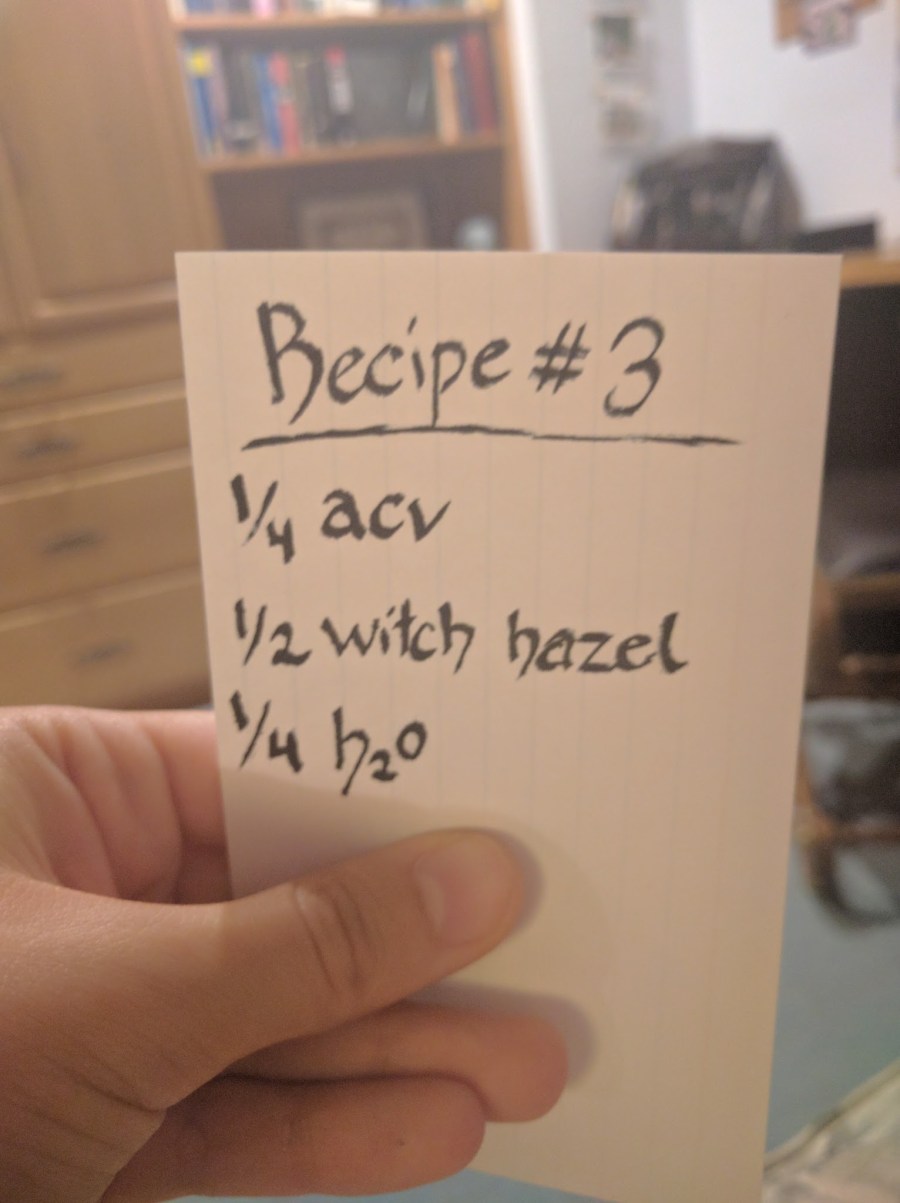 Recipe #3
1/4 acv
1/2 witch hazel
1/4 h₂o